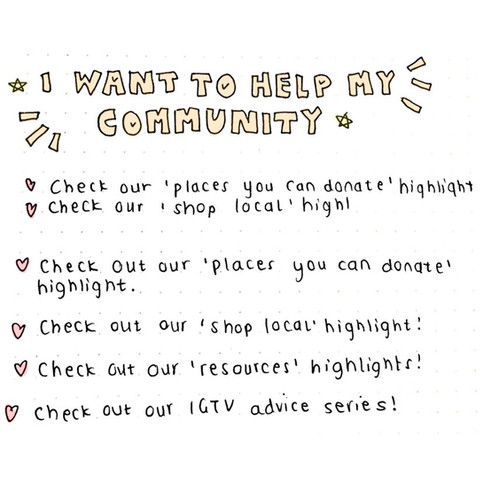 I WANT TO HELP MY
COMMUNITY
Check our 'places you can donate' highlight
Check our 'shop local' highl
Check out our 'places you can donate'
highlight.
Check out our 'shop local' highlight!
Check out our 'resources' highlights!
Check out our IGTV advice series!